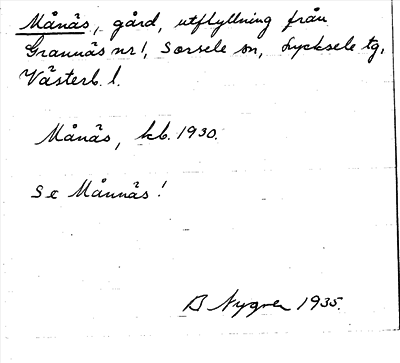 Månäs, gård, utflyttning från
Grannäs nr 1, Sorsele sn, Lycksele tg,
Västerb. l.
Månäs, kb. 1930.
Se Månnäs!
B Nygren 1935.